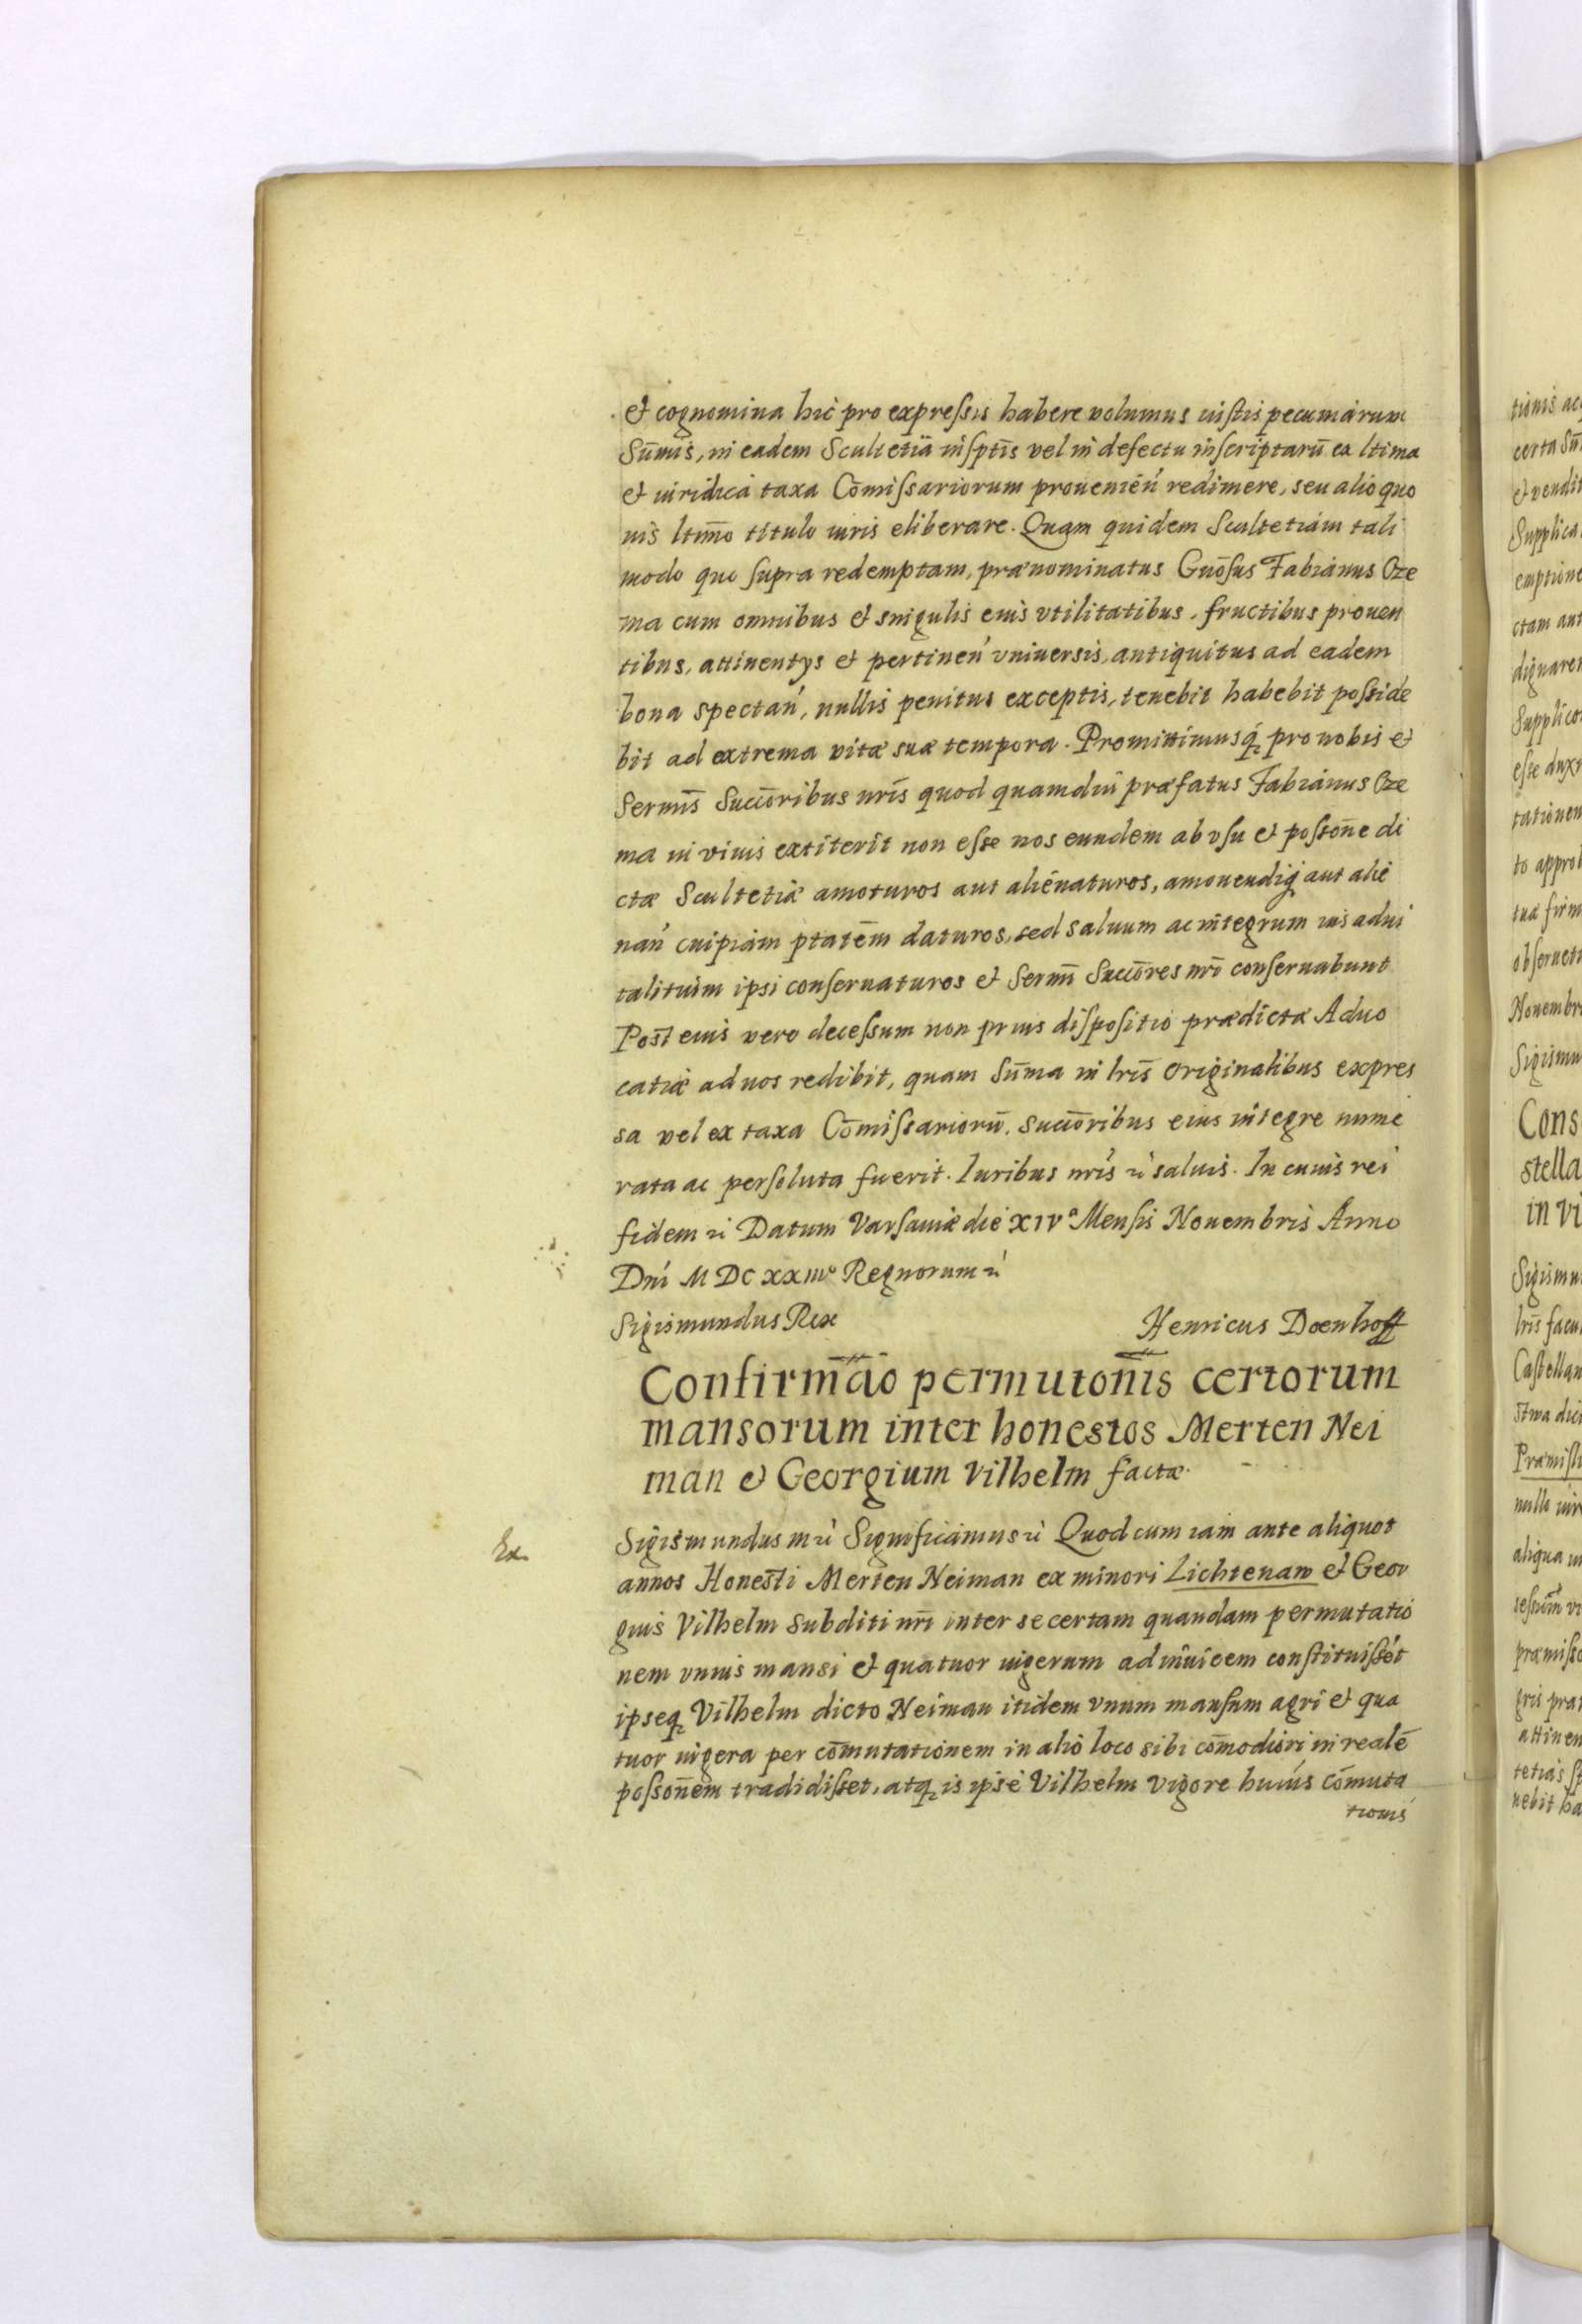 et cognomina hic pro expreſsis habere volumus iuſtis pecuniarum
Sūmis, in eadem Scultetia inſptīs vel in defectu inſcriptarū ex ltima
et iuridica taxa Cōmiſsariorum prouenień redimere, seu alio quo
uis ltīmo titulo iuris eliberare. Quam quidem Scultetiam tali
modo quo ſupra redemptam, prænominatus Gnōſus Fabianus Oze
ma cum omnibus et singulis eius vtilitatibus, fructibus prouen
tibus, attinentys et pertineń vniuersis, antiquitus ad eadem
bona spectań, nullis penitus exceptis, tenebit habebit poſside
bit ad extrema vitæ suæ tempora. Promittimusq́ pro nobis et
Sermīs Succōribus nrīs quod quamdiu præfatus Fabianus Oze
ma in viuis extiterit non eſse nos eundem ab vſu et poſsōne di
ctæ Scultetiæ amoturos aut alienaturos, amouendiq́ aut alie
nań cuipiam ptatēm daturos, sed saluum ac integrum ius adui
talituim ipsi conſeruaturos et Sermī Succōres nrī conſeruabunt
Post eius vero deceſsum non prius diſpoſitio prædictæ Aduo
catiæ ad nos redibit, quam Sūma in lrīs originalibus expres
sa vel ex taxa Cōmiſsariorū, succōribus eius integre nume
rata ac perſoluta fuerit. Iuribus nrīs ꝛ saluis. In cuius rei
fidem ꝛ Datum Varſauiæ die XIVº Menſis Nouembris Anno
Dnī MDCXXIIIº Regnorum ꝛ
Sigismundus Rex Henricus Doenhoff
Confirmāo permutonīs certorum
mansorum inter honestos Merten Nei
man et Georgium Vilhelm factæ.
Ex.
Sigismundus m ꝛ Significamus ꝛ Quod cum iam ante aliquot
annos Honesti Merten Neiman ex minori Lichtenaw et Geor
gius Vilhelm subditi nrī inter se certam quandam permutatio
nem vnius mansi et quatuor iugerum ad inuicem conſtituiſsēt
ipseq Vilhelm dicto Neiman itidem vnum manſum agri et qua
tuor iugera per cōmutationem in alio loco sibi cōmodiori in realē
poſsonēm tradidiſset, atq is ipse Vilhelm vigore huius cōmuta
tionis